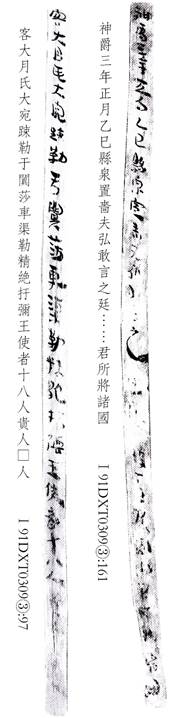 神爵三年正月乙巳縣泉置嗇夫弘敢言之廷……君所將諸國
I 91DXT0309③:161
客大月氏大宛踈勒于闐莎車渠勒精絕扜彌王使者十八人貴人□人
I 91DXT0309③:97